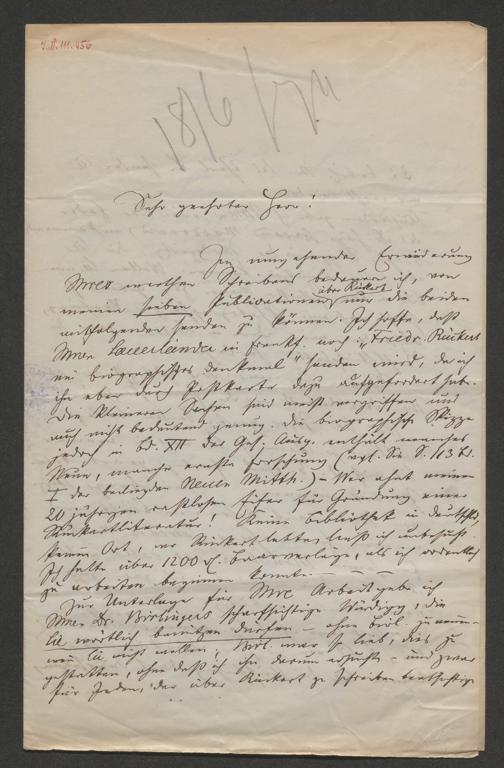 18/6 77
Sehr geehrter Herr!
In umgehender Erwiderung
Ihres werthen Schreibens bedaure ich, von
meinen sieben Publicationen über Rückert nur die beiden
mitfolgenden senden zu können. Ich hoffe, daß
Ihnen Sauerländer in Frankf. noch: „Friedr. Rückert
ein biographisches Denkmal" senden wird, da ich
ihn eben durch Postkarte dazu aufgefordert habe.
Die kleineren Sachen sind meist vergriffen und
auch nicht bedeutend genug. Die biographische Skizze
jedoch in Bd. XII der Ges. Ausg. enthält manches
Neue, manche Forschung (vgl. Sie S. 113 
der beiliegden Neuen Mitth.) – Wer ahnt meinen
20 jährigen rastlosen Eifer für Gründung einer
Rückertliteratur! Keine Bibliothek in Deutschld,
keinen Ort, wo Rückert lebte, ließ ich
Ich hatte über 1200 fl. Baarverläge, als ich ordentlich
zu arbeiten beginnen konnte. – –
Zur Unterlage für Ihre Arbeit gebe ich
Ihnen Dr. Birlingers scharfsichtige Würdigg, die
Sie wörtlich benützen dürfen – ohne Birl. zu nennen
wenn Sie nicht wollen; Birl. war so lieb, dies zu
gestatten, ohne daß ich ihn darum ersuchte – und zwar
für Jeden, der über Rückert zu schreiben beabsichtige